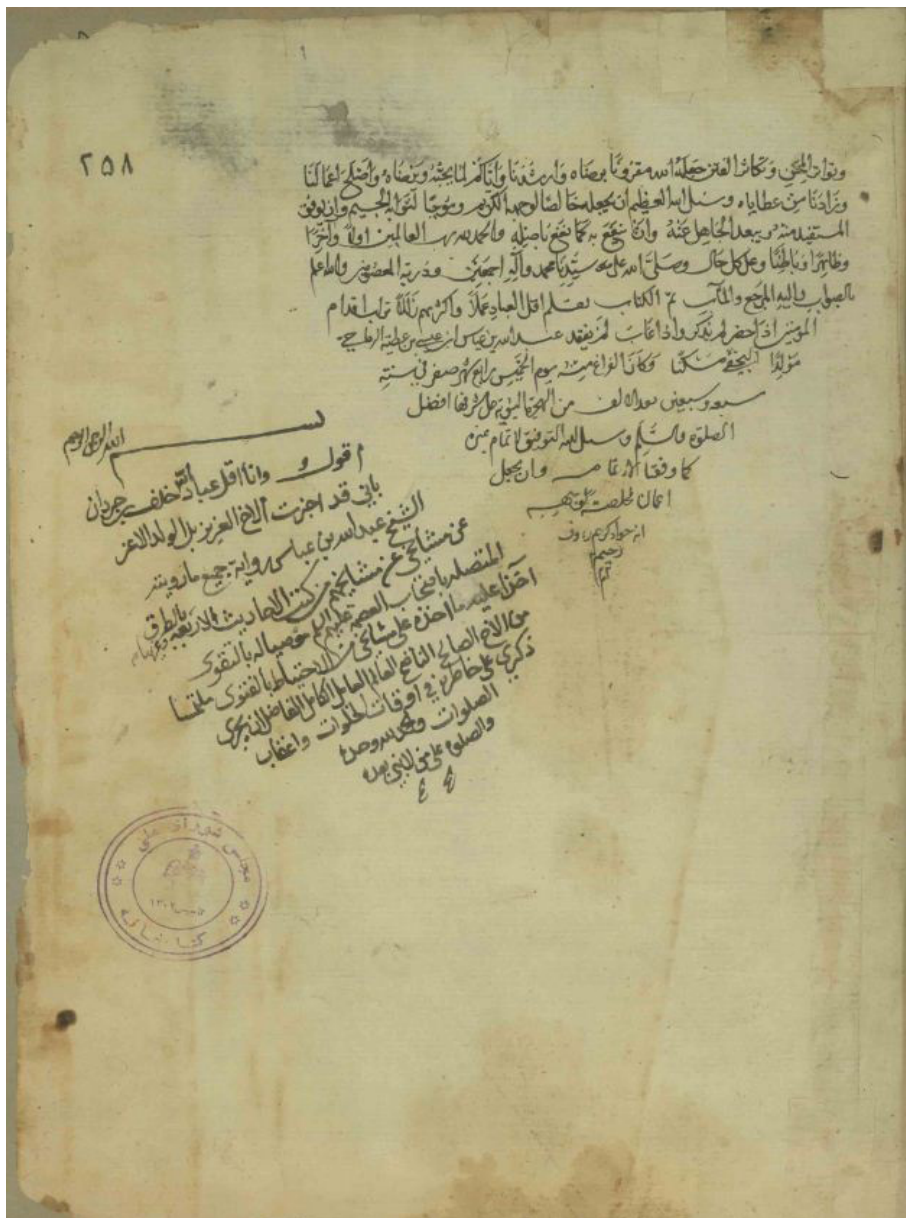 ٢٥٨
وتواتر المحن وتكاثر الفتن جعله الله مقرونا برضاه وارشدنا واياكم لما يحبه ويرضاه واصلح اعمالنا
وزادنا من عطاياه ونسئل الله العظيم ان يجعله خالصا لوجهه الكريم وموجبا لثوابه الجسيم وان يوفق
المستفيد منه ويبعد الجاهل عنه وان ينفع به كما نفع باصله والحمد لله رب العالمين اولا وآخرا
وظاهرا وباطنا وعلى كل حال وصلى الله على سيدنا محمد وآله اجمعين وذرية المعصومين والله اعلم
بالصواب واليه المرجع والمآب تم الكتاب بقلم اقل العباد عملا واكثرهم زللا تراب اقدام
المؤمنين اذا حضر لم يذكر واذا غاب لم يفقد عبد الله بن عباس بن عطية
مولدا النجفي مسكنا وكان الفراغ منه يوم الخميس رابع شهر صفر في سنة
سبعه وسبعين بعد الالف من الهجرة النبوية على مشرفها افضل
الصلوة والسلم ونسئل الله التوفيق لاتمام
كما وفقنا وان يجعل
اعمالنا خالصة لوجهه
انه جواد كريم رؤف
رحيم
بسم الله الرحمن الرحيم
اقول وانا اقل عباد الله خلف بن حردان
باني قد اجزت الاخ العزيز بل الولد الاعز
الشيخ عبد الله بن عباس رواية جميع ما رويته
عن مشايخي عن مشايخهم من كتب الاحاديث الاربعة وغيرها بالطرق
المتصلة باصحاب العصمة عليهم السلام موصيا له بالتقوى
آخذا عليه ما اخذه علي مشايخي من الاحتياط بالفتوى ملتمسا
من الاخ الصالح الناصح العالم العامل الكامل الفاضل ان يجري
ذكري على خاطره في اوقات الخلوات واعقاب
الصلوات والحمد لله وحده
والصلوة على من لا نبي بعده
مجلس شوراى ملى
١٣٠٢
كتابخانه